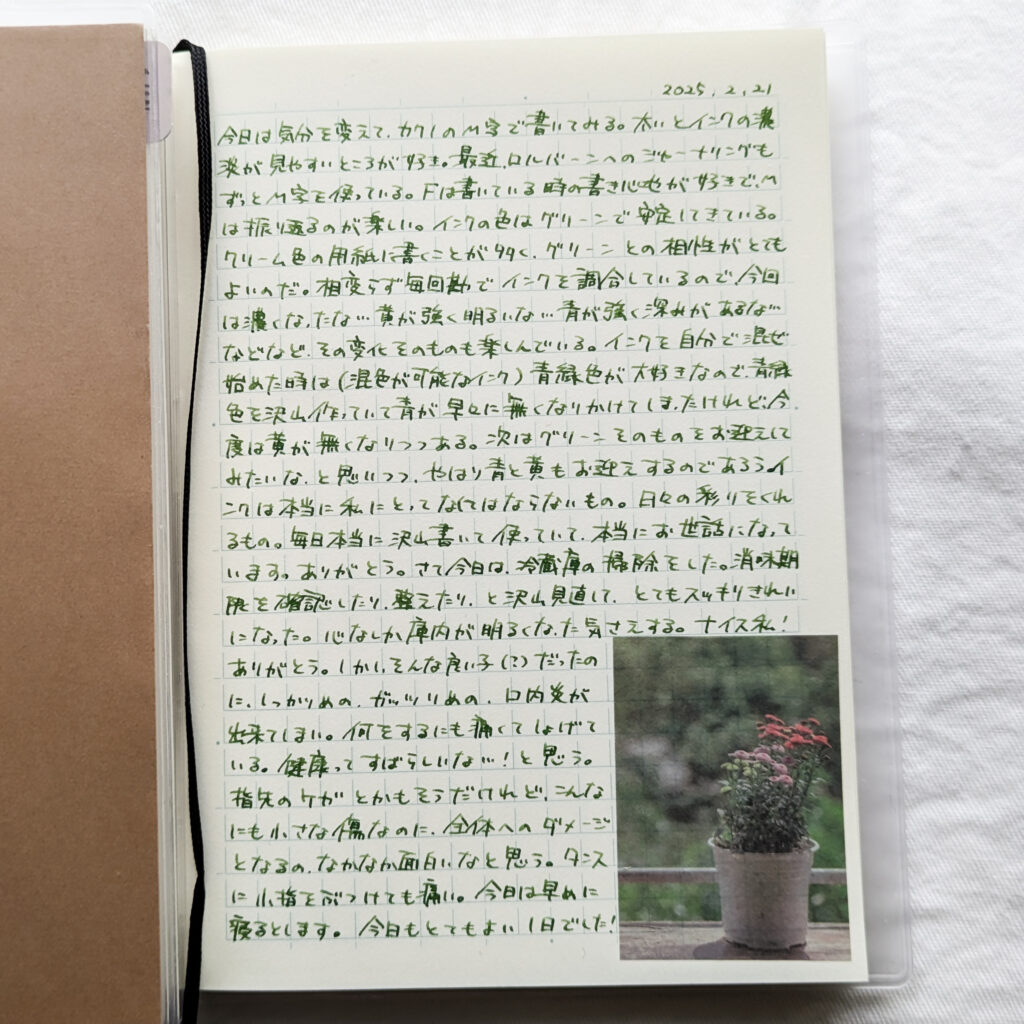 2025.2.21
今日は気分を変えて、カクノのM字で書いてみる。太いとインクの濃
淡が見やすいところが好き。最近、ロルバーンへのジャーナリングも
ずっとM字を使っている。Fは書いている時の書き心地が好きで、M
は振り返るのが楽しい。インクの色はグリーンで安定してきている。
クリーム色の用紙に書くことが多く、グリーンとの相性がとても
よいのだ。相変らず毎回勘でインクを調合しているので、今回
は濃くなったな…黄が強く明るいな…青が強く深みがあるな…
などなど、その変化そのものも楽しんでいる。インクを自分で混ぜ
始めた時は(混色が可能なインク)青緑色が大好きなので、青緑
色を沢山作っていて青が早々に無くなりかけてしまったけれど、今
度は黄が無くなりつつある。次はグリーンそのものをお迎えして
みたいな、と思いつつ、やはり青と黄もお迎えするのであろう。イ
ンクは本当に私にとってなくてはならないもの。日々の彩りをくれ
るもの。毎日本当に沢山書いて使っていて、本当にお世話になって
います。ありがとう。さて今日は、冷蔵庫の掃除をした。消味期
限を確認したり、整えたり、と沢山見直して、とてもスッキリきれい
になった。心なしか庫内が明るくなった気さえする。ナイス私!
ありがとう。しかし、そんな良い子(?)だったの
に、しっかりめの、ガッツリめの、口内炎が
出来てしまい。何をするにも痛くてしょげて
いる。健康ってすばらしいな…!と思う。
指先のケガとかもそうだけれど、こんな
にも小さな傷なのに、全体へのダメージ
となるの、なかなか面白いなと思う。タンス
に小指をぶつけても痛い。今日は早めに
寝るとします。今日もとてもよい1日でした!